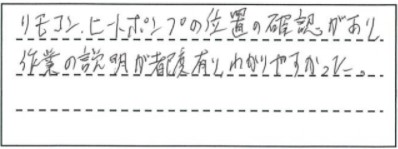 リモコン、ヒートポンプの位置の確認があり、
作業の説明が都度有りわかりやすかった。